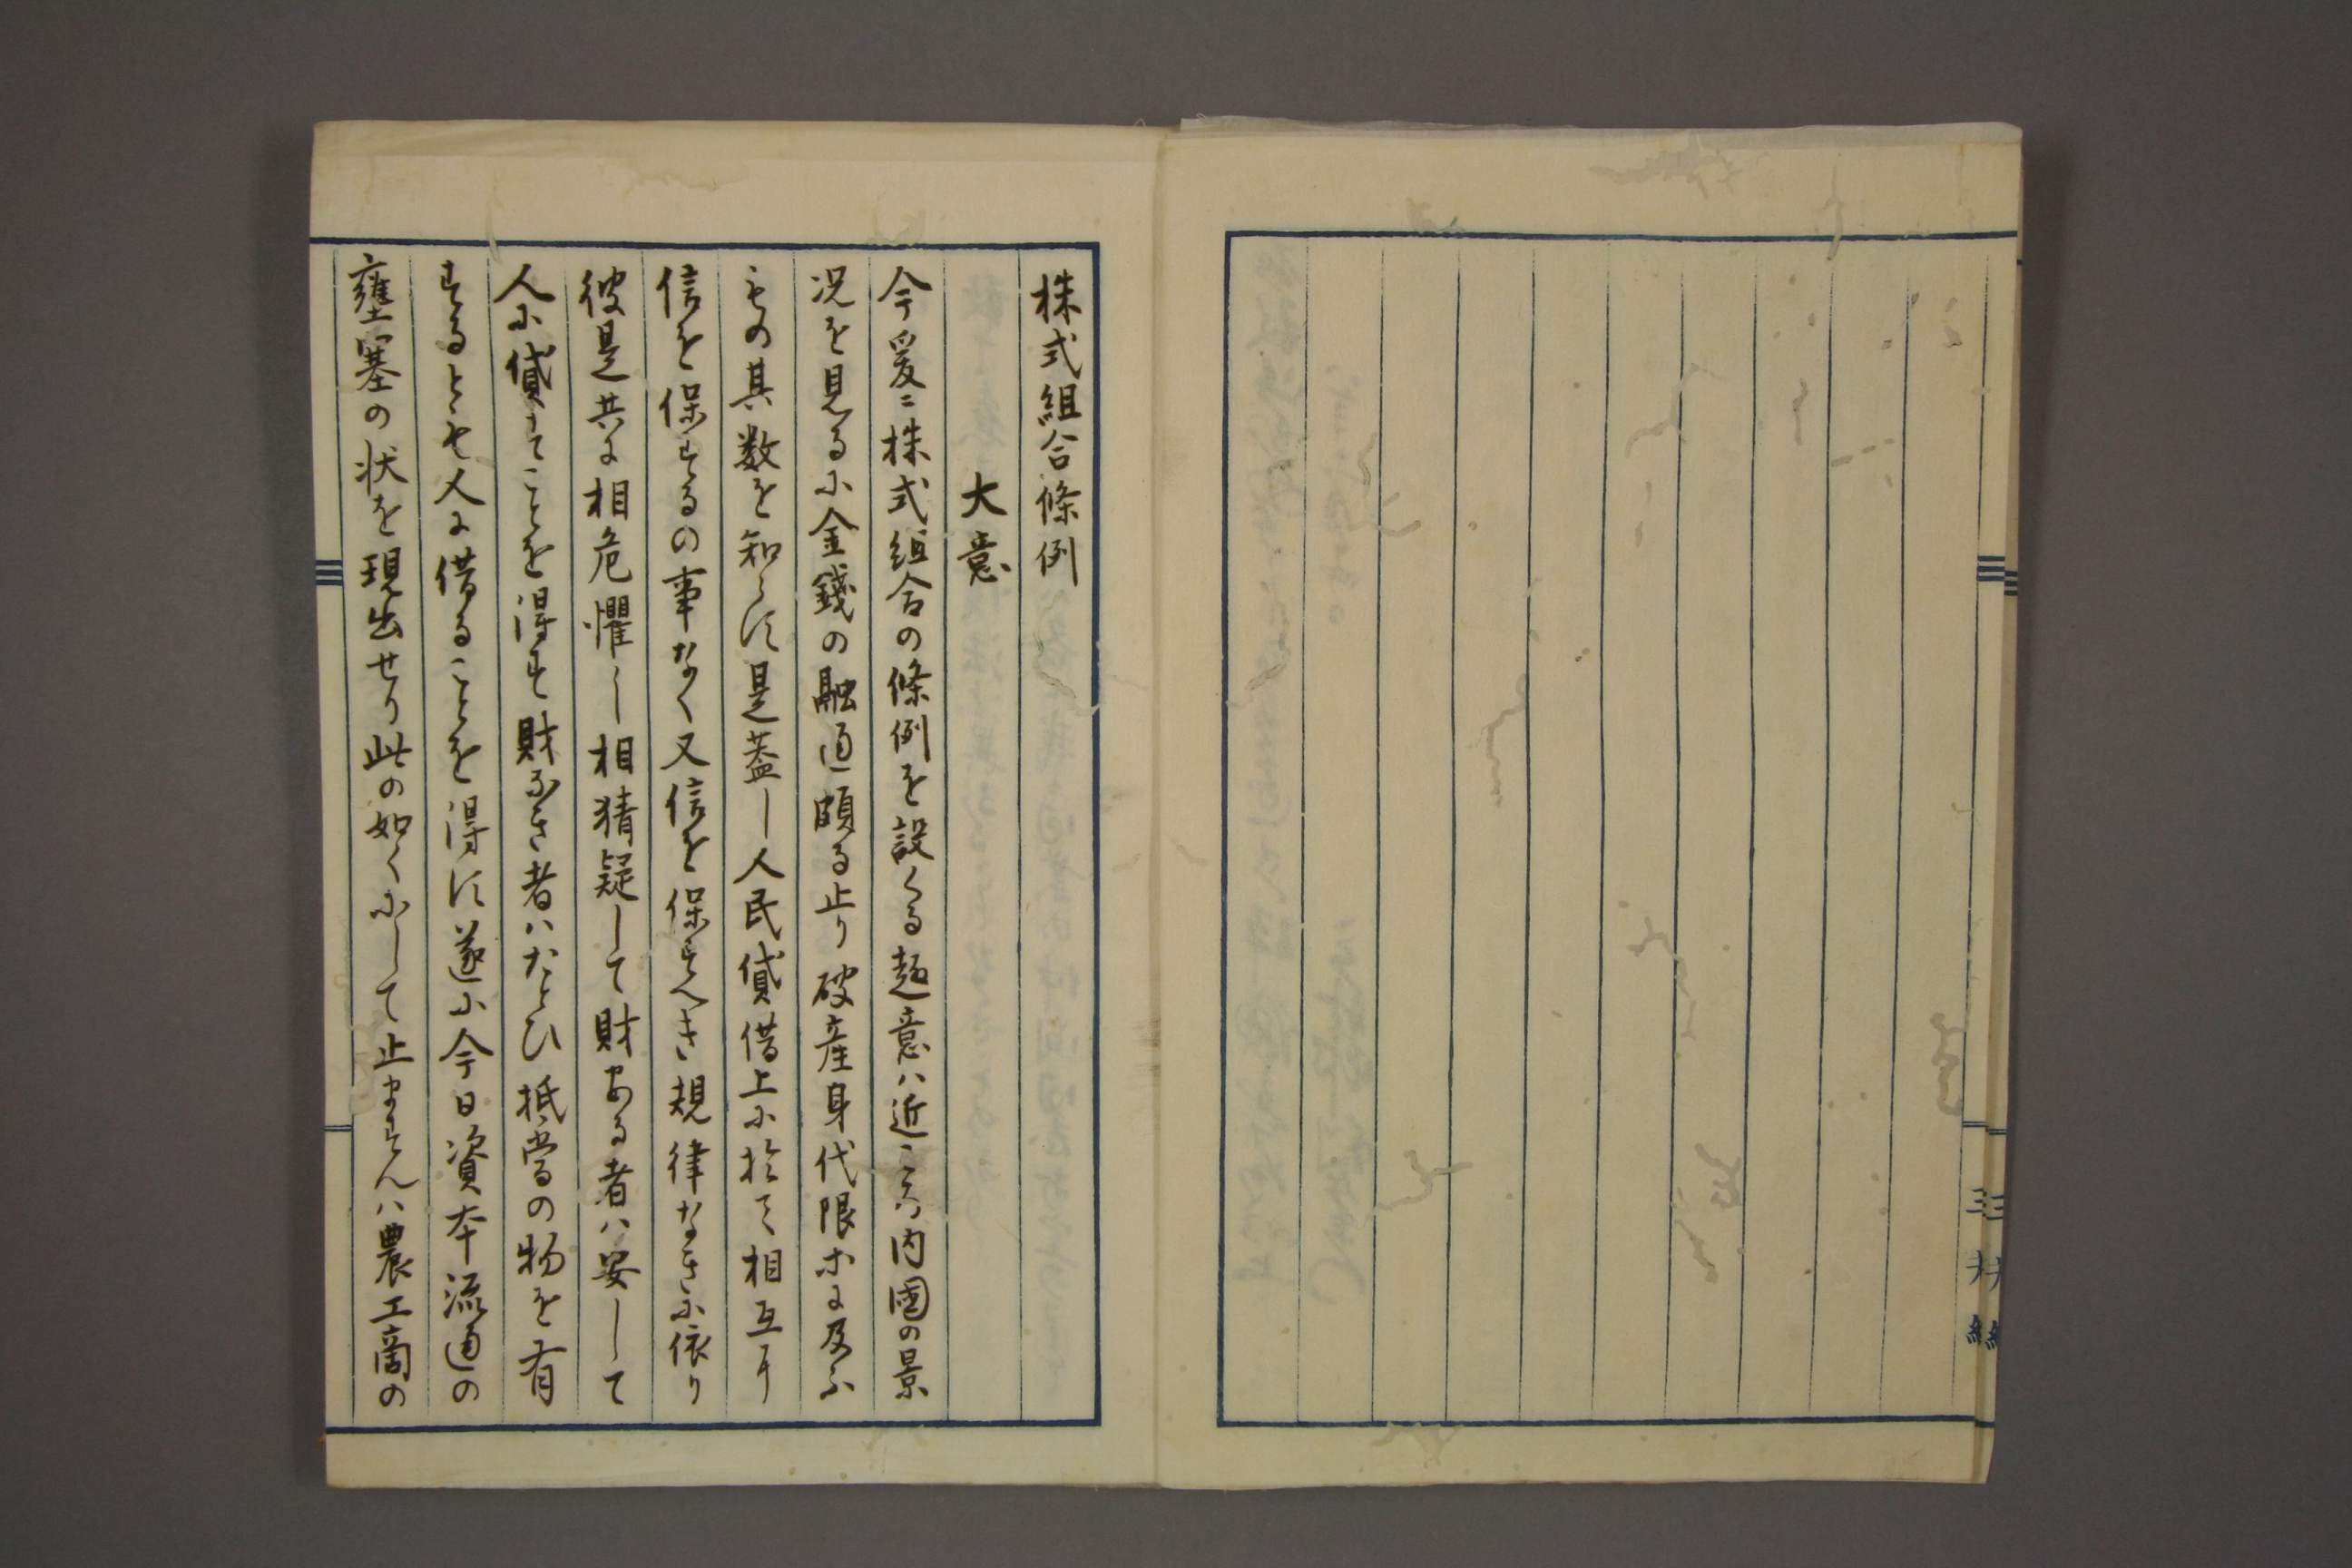 株式組合條例
大意
今爰ニ株式組合の條例を設くる趣意ハ近ころ内國の景
况を見るに金錢の融通頗る止り破産身代限ホに及ふ
もの其数を知らす是蓋し人民貸借上に於て相互ヒ
信を保するの事なく又信を保すへき規律なきに依り
彼是共に相危懼し相猜疑して財ある者ハ安して
人に貸すことを得す財なき者ハたとひ抵當の物を有
するとも人に借ることを得す遂に今日資本流通の
壅塞の状を現出せり此の如くにして止ますんハ農工商の